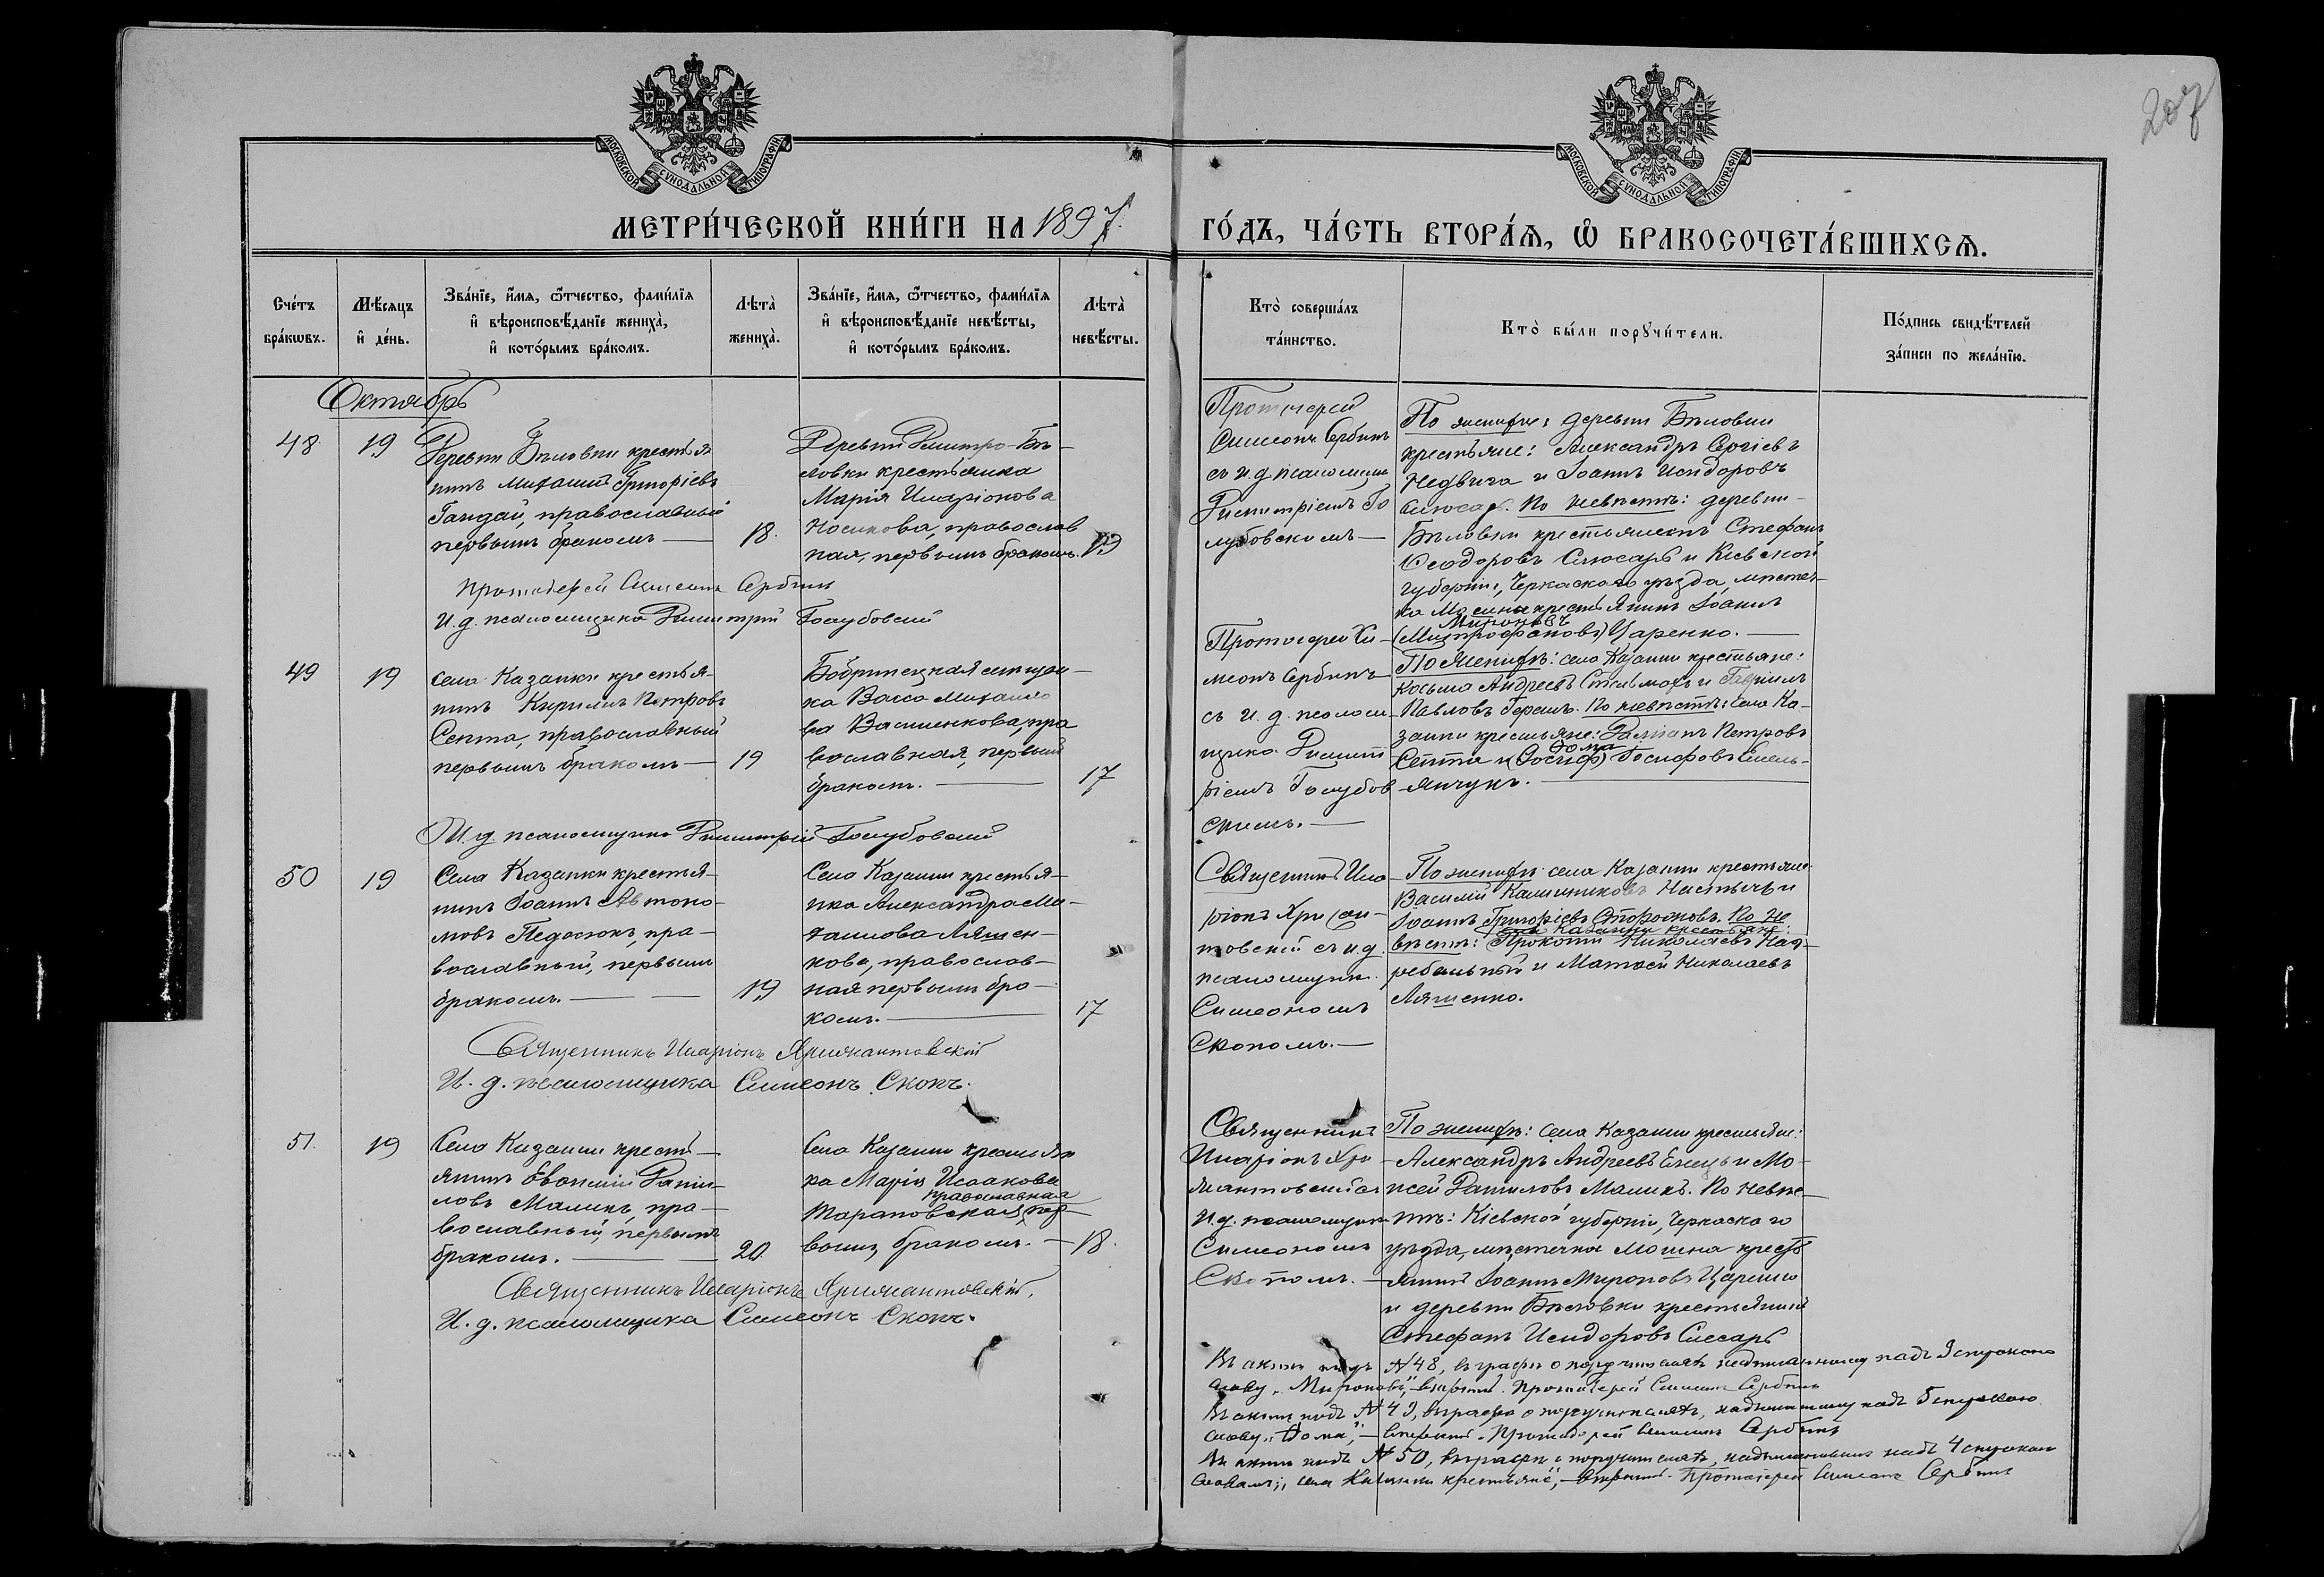 207
МОСКОВСКОЙ СѴНОДАЛЬНОЙ ТИПОГРАФІИ
МОСКОВСКОЙ СѴНОДАЛЬНОЙ ТИПОГРАФІИ
МЕТРИ́ЧЕСКОЙ КНИ́ГИ НА 1897
ГО́ДЪ, ЧА́СТЬ ВТОРА́Ѧ, Ѽ БРАКОСОЧЕТА́ВШИХСѦ.
Сче́тъ
бра́кѡвъ.
Мѣ́сѧцъ
и҆ де́нь.
Зва́нїе, и҆́мѧ, ѻ҆́тчество, фами́лїѧ
и҆ вѣроисповѣ́данїе жениха̀,
и҆ кото́рымъ бра́комъ.
Лѣта̀
жениха̀.
Зва́нїе, и҆́мѧ, ѻ҆́тчество, фами́лїѧ
и҆ вѣроисповѣ́данїе невѣ́сты,
и҆ кото́рымъ бра́комъ.
Лѣта̀
невѣ́сты.
Кто̀ соверша́лъ
та́инство.
Кто̀ бы́ли порꙋчи́тели.
По́дпись свидѣ́телей
за́писи по жела́нїю.
Октябрь
48
19
Деревни Бѣловки крестья
нинъ Михаилъ Григоріевъ
Гандай, православный
первымъ бракомъ —
18.
Деревни Дмитро-Бѣ-
ловки крестьянка
Марія Иларіонова
Носикова, православ
ная, первымъ бракомъ.
19
Протоіерей
Симеонъ Сербинъ
съ и. д. псаломщ
Димитріемъ Го
лубовскимъ —
По женихѣ: деревни Бѣловки
крестьяне: Александръ Сергіевъ
Недвига и Іоаннъ Исидоровъ
Слюсарь. По невѣстѣ: деревни
Бѣловки крестьянинъ Стефанъ
Ѳеодоровъ Слюсарь и Кіевской
губерніи, Черкаскаго уѣзда, мѣстеч-
ка Мошны крестьянинъ Іоаннъ
Мироновъ
(Митрофановъ) Царенко. —
Протоіерей Симеонъ Сербинъ
И. д. псаломщика Димитрій Голубовскій
49
19
Села Казанки крестья-
нинъ Кириллъ Петровъ
Септа, православный
первымъ бракомъ —
19
Бобринецкая мѣщан-
ка Васса Михайло
ва Василенкова, пра
вославная, первымъ
бракомъ. —
17
Протоіерей Си-
меонъ Сербинъ
съ и. д. псалом-
щика Димит
ріемъ Голубов
скимъ. —
По женихѣ: села Казанки крестьяне:
Косьма Андреевъ Стельмахъ и Гавріилъ
Павловъ Герешъ. По невѣстѣ: села Ка-
занки крестьяне: Даміанъ Петровъ
Ѳома
Септа и (Іосифъ) Іосифовъ Емель-
янчукъ. —
И. д. псаломщика Димитрій Голубовскій
50
19
Села Казанки крестья-
нинъ Іоаннъ Автоно-
мовъ Педосюкъ, пра-
вославный, первымъ
бракомъ. —
19
Села Казанки крестья-
нка Александра Ми-
хаилова Ляшен-
кова, православ-
ная первымъ бра-
комъ. —
17
Священникъ Ила
ріонъ Хрисан-
товскій съ и. д.
псаломщик
Симеономъ
Скопомъ. —
По женихѣ: села Казанки крестьяне
Василій Калинниковъ и
Іоаннъ Григорієвъ Сторожовъ. По не
села Казанки крестьяне:
вѣстѣ: Прокопій Николаевъ На-
и Матвѣй Николаевъ
Ляшенко.
Священникъ Иларіонъ Хрисантовскій
И. д. псаломщика Симеонъ Скопъ.
51.
19
Села Казанки кресть-
янинъ Евѳимій Данiи-
ловъ Маликъ, пра-
вославный, первымъ
бракомъ. —
20
Села Казанки крестьян
ка Марія Исаакова
православная
Тарановская, пер-
вымъ бракомъ. —
18.
Священникъ
Иларіонъ Хри
сантовскій съ
и. д. псаломщик
Симеономъ
Скопомъ. —
По женихѣ: села Казанки крестьяне:
Александръ Андреевъ Енецъ и Мо-
исей Даниловъ Маликъ. По невѣс-
тѣ: Кіевской губерніи, Черкаскаго
уѣзда, мѣстечка Мошна кресть
янинъ Іоаннъ Мироновъ Царенко
и деревни Бѣловки крестьянинъ
Стефанъ Исидоровъ Слесарь
Священникъ Иларіонъ Хрисантовскій,
И. д. псаломщика Симеонъ Скопъ.
Въ актѣ подъ № 48, въ графѣ о поручителяхъ надписанному надъ 9 строкою
слову „Мироновъ", — вѣрить. Протоіерей Симеонъ Сербинъ
Въ актѣ подъ № 49, въ графѣ о поручителяхъ, надписанному надъ 5 строкою
слову „Ѳома", — вѣрить. Протоіерей Симеонъ Сербинъ
Въ актѣ подъ № 50, въ графѣ о поручителяхъ, надписаннымъ надъ 4 строкою
словамъ: „села Казанки крестьяне", — вѣрить. Протоіерей Симеонъ Сербинъ